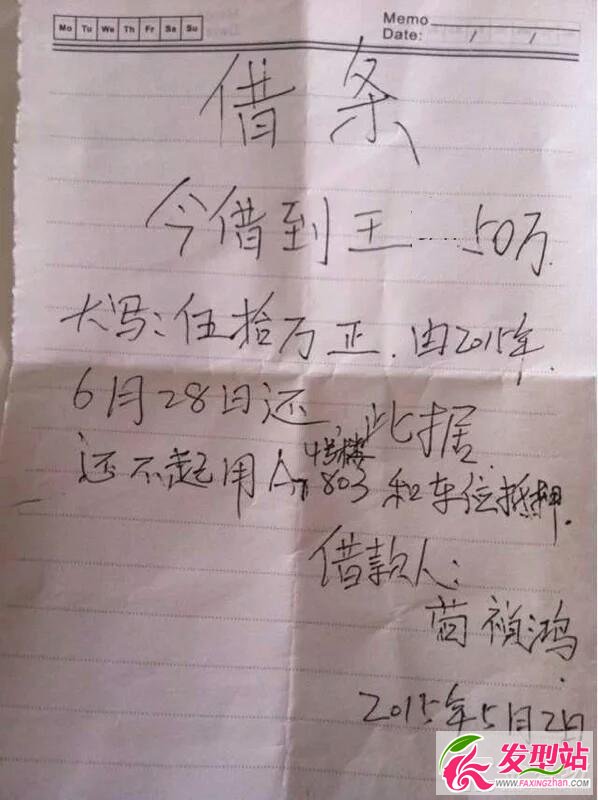 Mo Tu We Th Fr Sa Su
Memo
Date: / /
借条
今借到王 50万
大写:伍拾万正.由2015年.
6月28日还,此据.
4号楼
还不起用 803和车位抵押.
借款人:
祯鸿.
2015年5月2日
发型站
WWW.FAXINGZHAN.COM